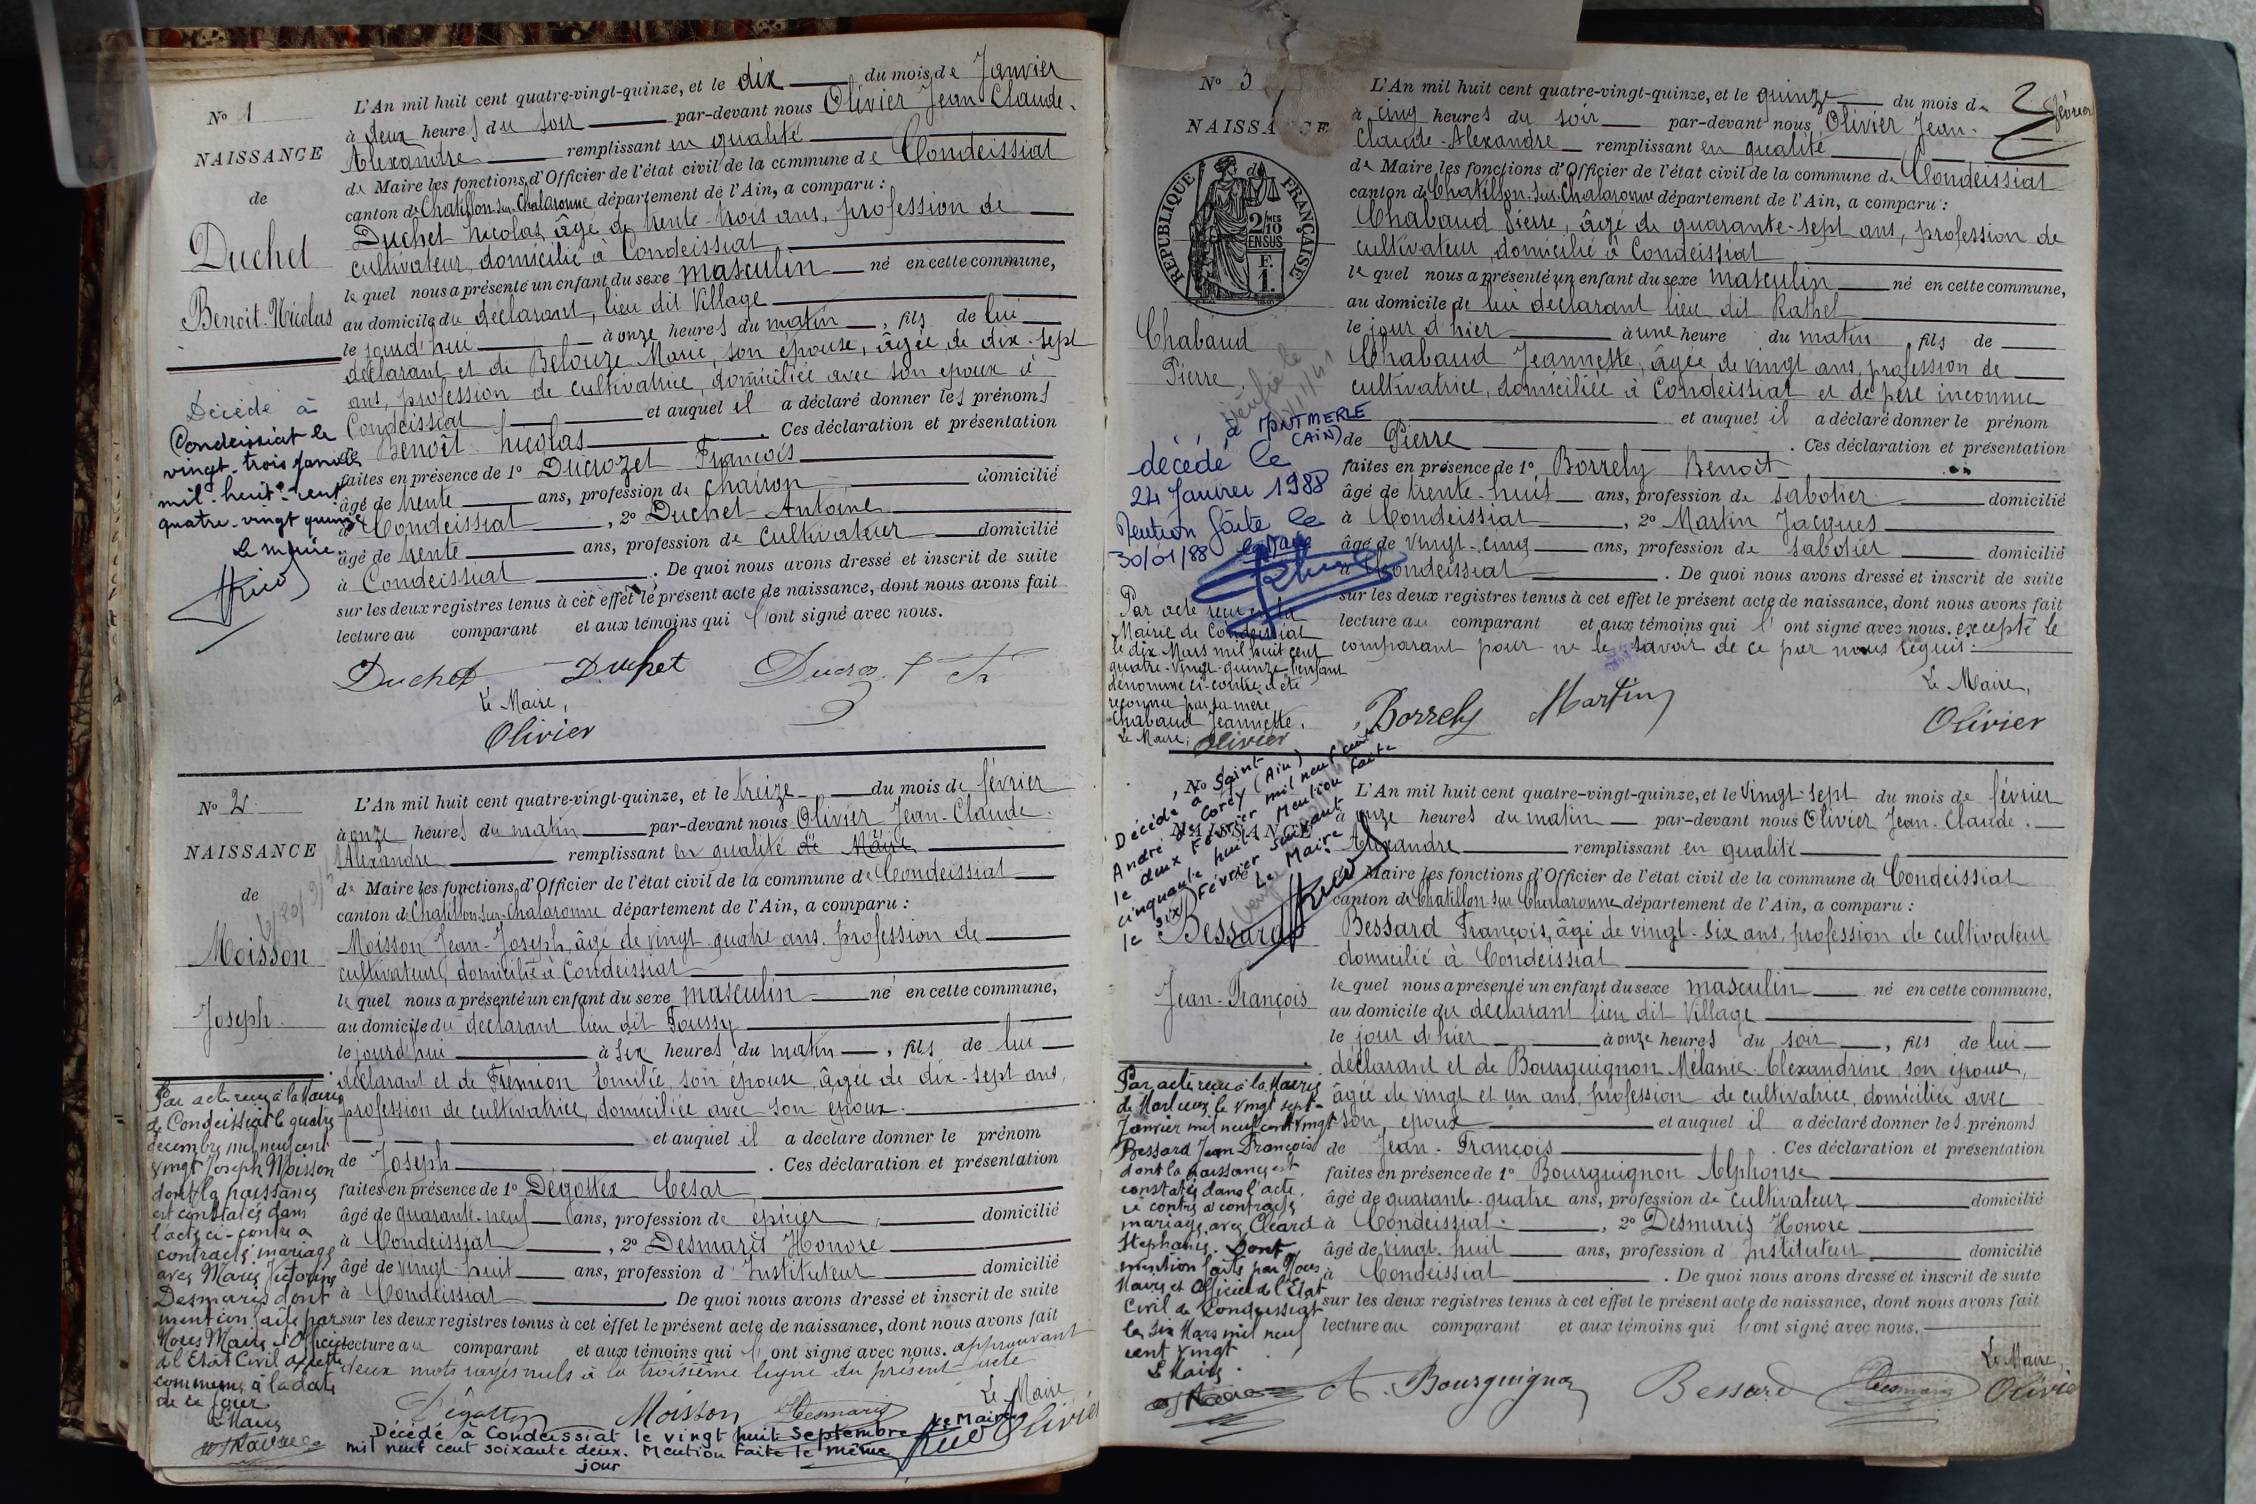 Nº 1
NAISSANCE
de
Duchet
Benoit-Nicolas
Décédé à
Condeissiat le
vingt-trois janvier
mil-huit-cent
quatre-vingt quinze
Le maire
L'An mil huit cent quatre-vingt-quinze, et le dix du mois de Janvier
à deux heures du soir par-devant nous Olivier Jean Claude-
Alexandre remplissant en qualité
de Maire les fonctions d'Officier de l'état civil de la commune de Condeissiat
canton de Chatillon-sur-Chalaronne département de l'Ain, a comparu :
Duchet Nicolas, âgé de trente-trois ans, profession de
cultivateur, domicilié à Condeissiat
le quel nous a présenté un enfant du sexe masculin né en cette commune,
au domicile du déclarant, lieu dit Village
le jourd'hui à onze heures du matin, fils de lui
déclarant et de Belouze Marie, son épouse, âgée de dix-sept
ans, profession de cultivatrice, domiciliée avec son époux à
Condeissiat et auquel il a déclaré donner les prénoms
de Benoît Nicolas. Ces déclaration et présentation
faites en présence de 1º Ducrozet François
âgé de trente ans, profession de charron domicilié
à Condeissiat, 2º Duchet Antoine
âgé de trente ans, profession de cultivateur domicilié
à Condeissiat. De quoi nous avons dressé et inscrit de suite
sur les deux registres tenus à cet effet le présent acte de naissance, dont nous avons fait
lecture au comparant et aux témoins qui l'ont signé avec nous.
Duchet Duchet
Le Maire,
Olivier
Nº 2
NAISSANCE
de
Moisson
Joseph
Par acte reçu à la Mairie
de Condeissiat le quatre
décembre mil neuf cent
vingt Joseph Moisson
dont la naissance
est constatée dans
l'acte ci-contre a
contracté mariage
avec Marie Victorine
Desmaris dont
mention faite par
Nous Maire et Officier
de l'Etat Civil de cette
commune à la date
de ce jour
Le Maire
L'An mil huit cent quatre-vingt-quinze, et le treize du mois de février
à onze heures du matin par-devant nous Olivier Jean-Claude-
Alexandre remplissant en qualité de Maire
de Maire les fonctions d'Officier de l'état civil de la commune de Condeissiat
canton de Chatillon-sur-Chalaronne département de l'Ain, a comparu :
Moisson Jean-Joseph, âgé de vingt-quatre ans, profession de
cultivateur, domicilié à Condeissiat
le quel nous a présenté un enfant du sexe masculin né en cette commune,
au domicile du déclarant lieu dit Foussy
le jourd'hui à six heures du matin, fils de lui
déclarant et de Frémion Emilie, son épouse, âgée de dix-sept ans,
profession de cultivatrice, domiciliée avec son époux.
et auquel il a déclaré donner le prénom
de Joseph. Ces déclaration et présentation
faites en présence de 1º Dégottex César
âgé de quarante-neuf ans, profession de épicier, domicilié
à Condeissiat, 2º Desmaris Honoré
âgé de vingt-huit ans, profession d'Instituteur domicilié
à Condeissiat. De quoi nous avons dressé et inscrit de suite
sur les deux registres tenus à cet effet le présent acte de naissance, dont nous avons fait
lecture au comparant et aux témoins qui l'ont signé avec nous. approuvant
deux mots rayés nuls à la troisième ligne du présent acte
Le Maire
Dégottex Moisson Desmaris Olivier
Décédé à Condeissiat le vingt huit Septembre
mil neuf cent soixante deux. Mention faite le même
jour
Le Maire
Nº 3
NAISSANCE
RÉPUBLIQUE FRANÇAISE
2/10
MES
EN SUS
F.
1.
Chabaud
Pierre
à MONTMERLE
(AIN)
décédé le
24 Janvier 1988
Mention faite le
30/01/88
Par acte reçu en la
Mairie de Condeissiat
le dix Mars mil huit cent
quatre-vingt-quinze l'enfant
dénommé ci-contre a été
reconnu par sa mère
Chabaud Jeannette.
Le Maire, Olivier
2
février
L'An mil huit cent quatre-vingt-quinze, et le quinze du mois de
à cinq heures du soir par-devant nous Olivier Jean-
Claude-Alexandre remplissant en qualité
de Maire les fonctions d'Officier de l'état civil de la commune de Condeissiat
canton de Chatillon-sur-Chalaronne département de l'Ain, a comparu :
Chabaud Pierre, âgé de quarante-sept ans, profession de
cultivateur, domicilié à Condeissiat
le quel nous a présenté un enfant du sexe masculin né en cette commune,
au domicile de lui déclarant lieu dit Rathel
le jour d'hier à une heure du matin, fils de
Chabaud Jeannette, âgée de vingt ans, profession de
cultivatrice, domiciliée à Condeissiat et de père inconnu
et auquel il a déclaré donner le prénom
de Pierre. Ces déclaration et présentation
faites en présence de 1º Borrely Benoit
âgé de trente-huit ans, profession de sabotier domicilié
à Condeissiat, 2º Martin Jacques
âgé de vingt-cinq ans, profession de sabotier domicilié
à Condeissiat. De quoi nous avons dressé et inscrit de suite
sur les deux registres tenus à cet effet le présent acte de naissance, dont nous avons fait
lecture au comparant et aux témoins qui l'ont signé avec nous. excepté le
comparant pour ne le savoir de ce par nous requis.
Le Maire,
Borrely Martin Olivier
Nº
NAISSANCE
Décédé à Saint
André de Corcy (Ain)
le deux Février mil neuf cent
cinquante huit. Mention faite
le six Février suivant
Le Maire
Bessard
Jean-François
Par acte reçu à la Mairie
de Marlieux le vingt sept
Janvier mil neuf cent vingt
Bessard Jean François
dont la naissance est
constatée dans l'acte
ci contre a contracté
mariage avec Cléard
Stephanie. Dont
mention faite par Nous
Maire et Officier de l'Etat
Civil de Condeissiat
le six Mars mil neuf
cent vingt
Le Maire
L'An mil huit cent quatre-vingt-quinze, et le vingt-sept du mois de février
à onze heures du matin par-devant nous Olivier Jean-Claude-
Alexandre remplissant en qualité
de Maire les fonctions d'Officier de l'état civil de la commune de Condeissiat
canton de Chatillon-sur-Chalaronne département de l'Ain, a comparu :
Bessard François, âgé de vingt-six ans, profession de cultivateur
domicilié à Condeissiat
le quel nous a présenté un enfant du sexe masculin né en cette commune,
au domicile du déclarant lieu dit Village
le jour d'hier à onze heures du soir, fils de lui
déclarant et de Bourguignon Mélanie-Alexandrine, son épouse,
âgée de vingt et un ans, profession de cultivatrice, domiciliée avec
son époux et auquel il a déclaré donner les prénoms
de Jean-François. Ces déclaration et présentation
faites en présence de 1º Bourguignon Alphonse
âgé de quarante-quatre ans, profession de cultivateur domicilié
à Condeissiat, 2º Desmaris Honoré
âgé de vingt-huit ans, profession d'Instituteur domicilié
à Condeissiat. De quoi nous avons dressé et inscrit de suite
sur les deux registres tenus à cet effet le présent acte de naissance, dont nous avons fait
lecture au comparant et aux témoins qui l'ont signé avec nous.
Le Maire,
A. Bourguignon Bessard Desmaris Olivier